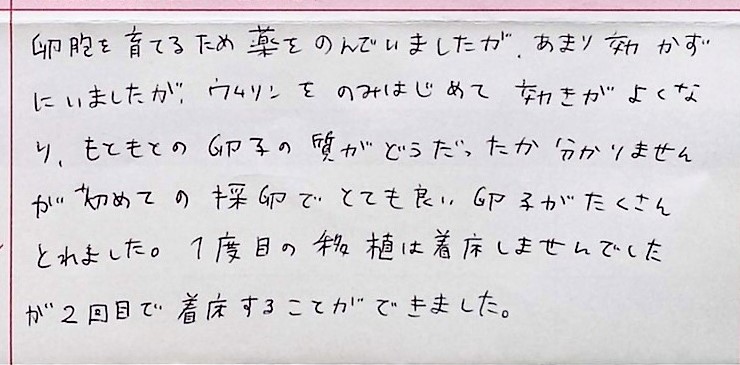 卵胞を育てるため薬をのんでいましたが、あまり効かず
にいましたが、ウムリンをのみはじめて効きがよくな
り、もともとの卵子の質がどうだったか分かりません
が初めての採卵でとても良い卵子がたくさん
とれました。1度目の移植は着床しませんでした
が2回目で着床することができました。